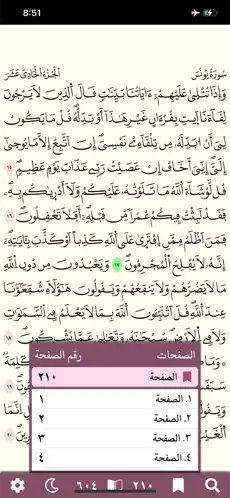 8:51
سُورَةُ يُونُسَ
الجُزْءُ الحَادِي عَشَرَ
وَإِذَا تُتْلَىٰ عَلَيْهِمْ ءَايَاتُنَا بَيِّنَٰتٍ قَالَ ٱلَّذِينَ لَا يَرْجُونَ
لِقَآءَنَا ٱئْتِ بِقُرْءَانٍ غَيْرِ هَٰذَآ أَوْ بَدِّلْهُ قُلْ مَا يَكُونُ
لِىٓ أَنْ أُبَدِّلَهُۥ مِن تِلْقَآئِ نَفْسِىٓ إِنْ أَتَّبِعُ إِلَّا مَا يُوحَىٰٓ
إِلَىَّ إِنِّىٓ أَخَافُ إِنْ عَصَيْتُ رَبِّى عَذَابَ يَوْمٍ عَظِيمٍ ١٥
قُل لَّوْ شَآءَ ٱللَّهُ مَا تَلَوْتُهُۥ عَلَيْكُمْ وَلَآ أَدْرَىٰكُم بِهِۦ
فَقَدْ لَبِثْتُ فِيكُمْ عُمُرًا مِّن قَبْلِهِۦٓ أَفَلَا تَعْقِلُونَ ١٦
فَمَنْ أَظْلَمُ مِمَّنِ ٱفْتَرَىٰ عَلَى ٱللَّهِ كَذِبًا أَوْ كَذَّبَ بِـَٔايَٰتِهِۦٓ
إِنَّهُۥ لَا يُفْلِحُ ٱلْمُجْرِمُونَ ١٧ وَيَعْبُدُونَ مِن دُونِ ٱللَّهِ
مَا لَا يَضُرُّهُمْ وَلَا يَنفَعُهُمْ وَيَقُولُونَ هَٰٓؤُلَآءِ شُفَعَٰٓؤُنَا
عِندَ ٱللَّهِ قُلْ أَتُنَبِّـُٔونَ ٱللَّهَ بِمَا لَا يَعْلَمُ فِى ٱلسَّمَٰوَٰتِ
وَلَا فِى ٱلْأَرْضِ سُبْحَٰنَهُۥ وَتَعَٰلَىٰ عَمَّا يُشْرِكُونَ ١٨
كَلِمَةٌ
١٩
إِنَّمَا
ٱلْغَيْبُ
٢٠
الصفحات رقم الصفحة
الصفحة ٢١٠
١. الصفحة ١
٢. الصفحة ٢
٣. الصفحة ٣
٤. الصفحة ٤
٢١٠ ٦٠٤